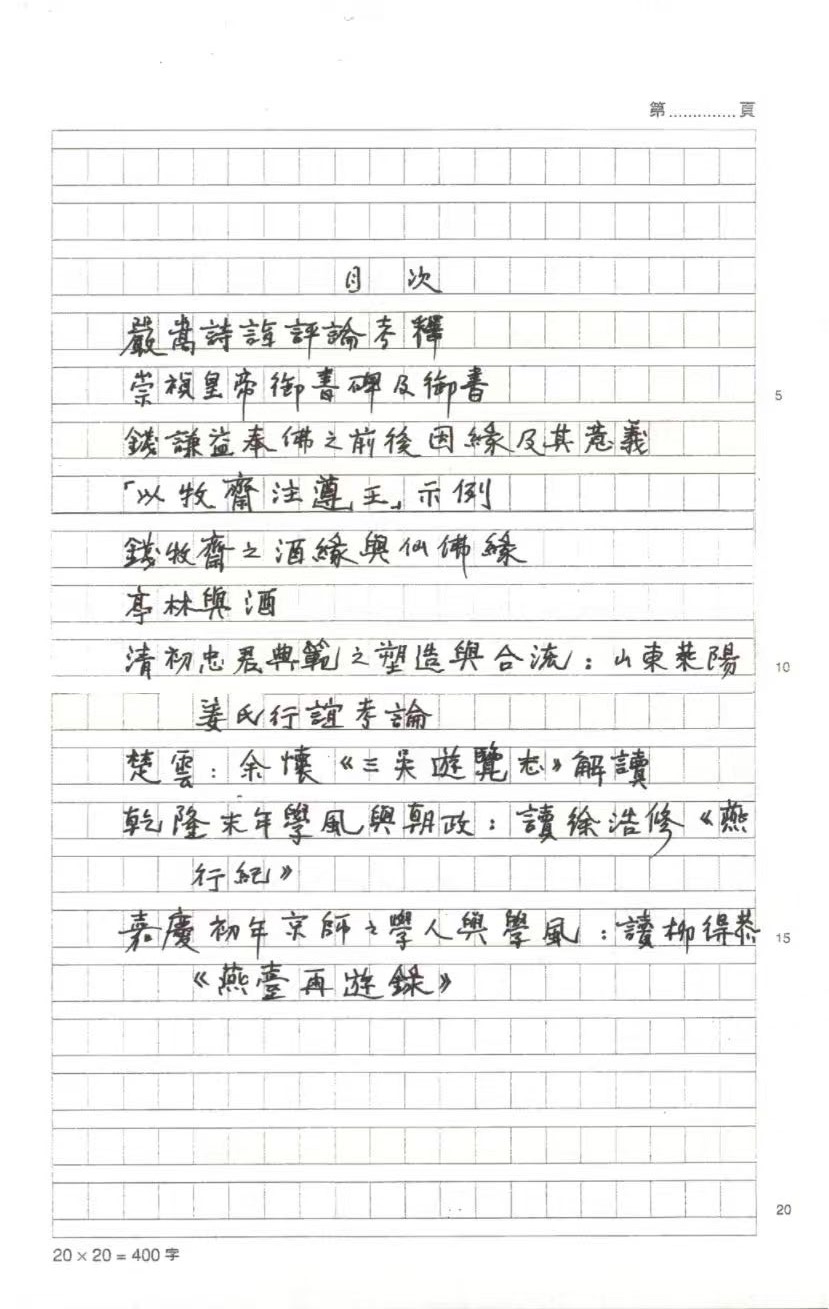 第..............頁
目 次
嚴嵩詩評論考釋
崇禎皇帝御書碑及御書
5
錢謙益奉佛之前後因緣及其意義
「以牧齋注遵王」示例
錢牧齋之酒緣與仙佛緣
亭林與酒
清初忠君典範之塑造與合流：山東萊陽
10
姜氏行誼考論
楚雲：余懷《三吳遊覽志》解讀
乾隆末年學風與朝政：讀徐浩修《燕
行紀》
嘉慶初年京師之學人與學風：讀柳得恭
15
《燕臺再遊錄》
20
20 × 20 = 400 字